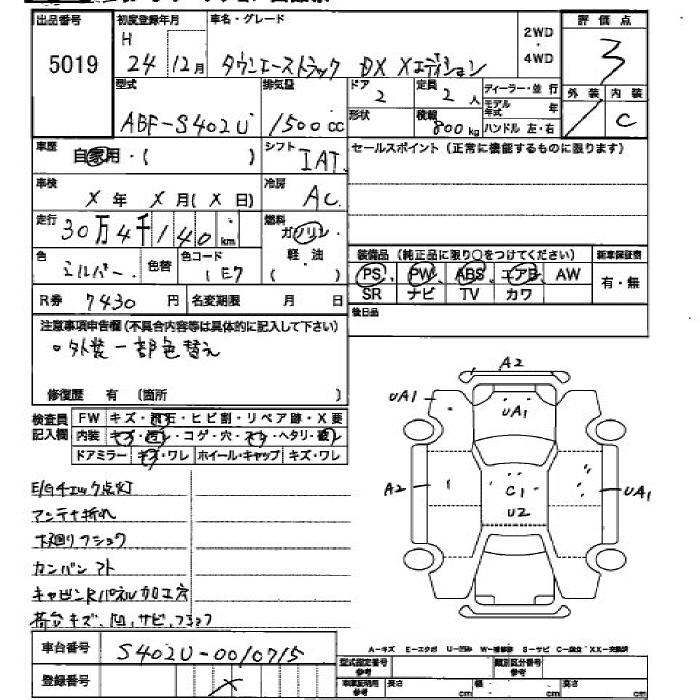 出品番号 初度登録年月 車名・グレード 2WD・4WD 評価点
5019 H 24 12月 タウンエーストラック DX Xエディション 3
型式 排気量 ドア 2 定員 2 人 ディーラー・並行 外装 内装
ABF-S402U 1500cc 形状 積載 800kg モデル年式 年 ハンドル 左・右 C
車歴 自家用・( ) シフト IAT セールスポイント(正常に機能するものに限ります)
車検 X 年 X 月(X 日) 冷房 AC
走行 30万4千140km 燃料 ガソリン 軽・油 ( ) 装備品(純正品に限り○をつけてください) 新車保証書
色 シルバー 色替 色コード 1E7 PS PW ABS エアB AW 有・無
R券 7430 円 名変期限 月 日 SR ナビ TV カワ
注意事項申告欄(不具合内容等は具体的に記入して下さい) 後日品
○外装一部色替え
修復歴 有 (箇所 )
検査員記入欄 FW キズ・飛石・ヒビ割・リペア跡・X要
内装 キズ・汚レ・コゲ・穴・スレ・ヘタリ・破レ
ドアミラー キズ・ワレ ホイール・キャップ キズ・ワレ
A2
UA1 UA1
A2 C1 UA1
U2
E/Gチェック点灯
アンテナ折れ
下廻りフショク
カンバンアト
キャビンRパネル加工穴
荷台キズ、凹、サビ、フショク
車台番号 S402U-0010715
登録番号 X
A-キズ E-エクボ U-凹ミ W-補修跡 S-サビ C-腐食 XX-交換済
型式指定番号 参考 類別区分番号 参考
車庫証明用 参考 長さ cm 幅 cm 高さ cm